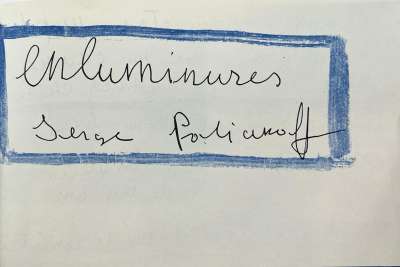 enluminures
Serge Poliakoff